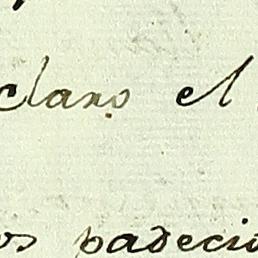 claro el
os padecio